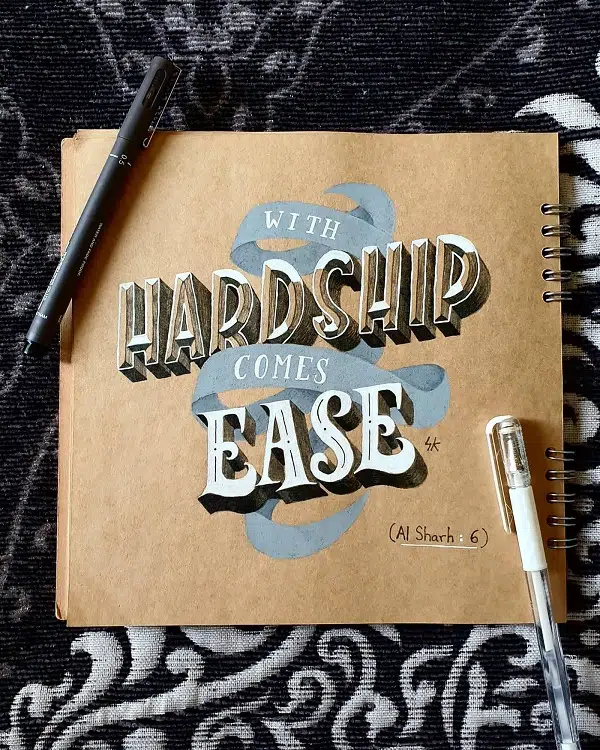 WITH
HARDSHIP
COMES
EASE
SK
(Al Sharh : 6)
0.5